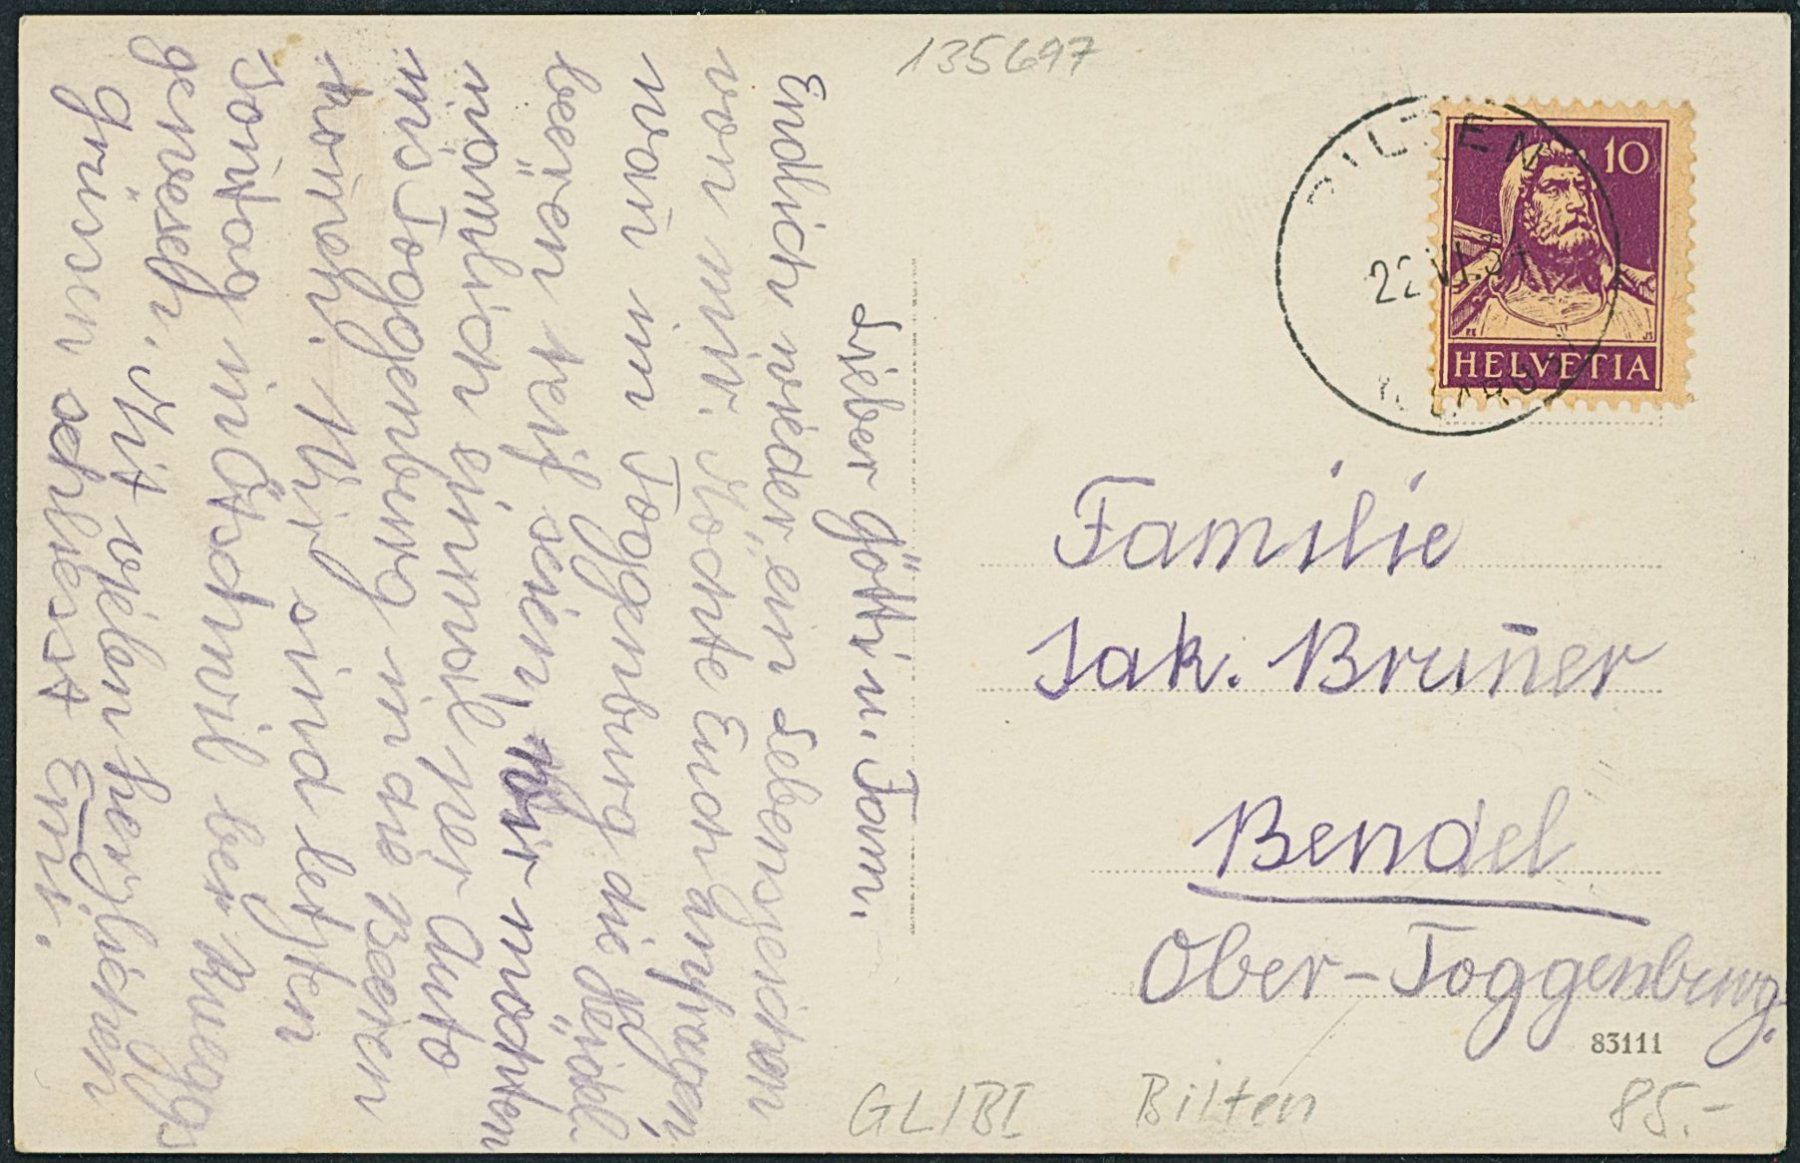 Lieber Götti u. Fam.
Endlich wieder ein Lebenszeichen
von mir. Möchte Euch anfragen,
wan im Toggenburg die Heidel-
beeren reif seien, wir möchten
nämlich einmal per Auto
ins Toggenburg in die Beeren
komeh. Wir sind letzten
Sontag in Ötschwil bei Rueggs
geweseh. Mit vielen herzlichen
Grüssen schliesst Erni.
135697
BILTEN
22.VI.31
(GLARUS)
10
HELVETIA
Familie
Jak. Bruner
Bendel
Ober-Toggenburg.
83111
GL/BI Bilten 85.-